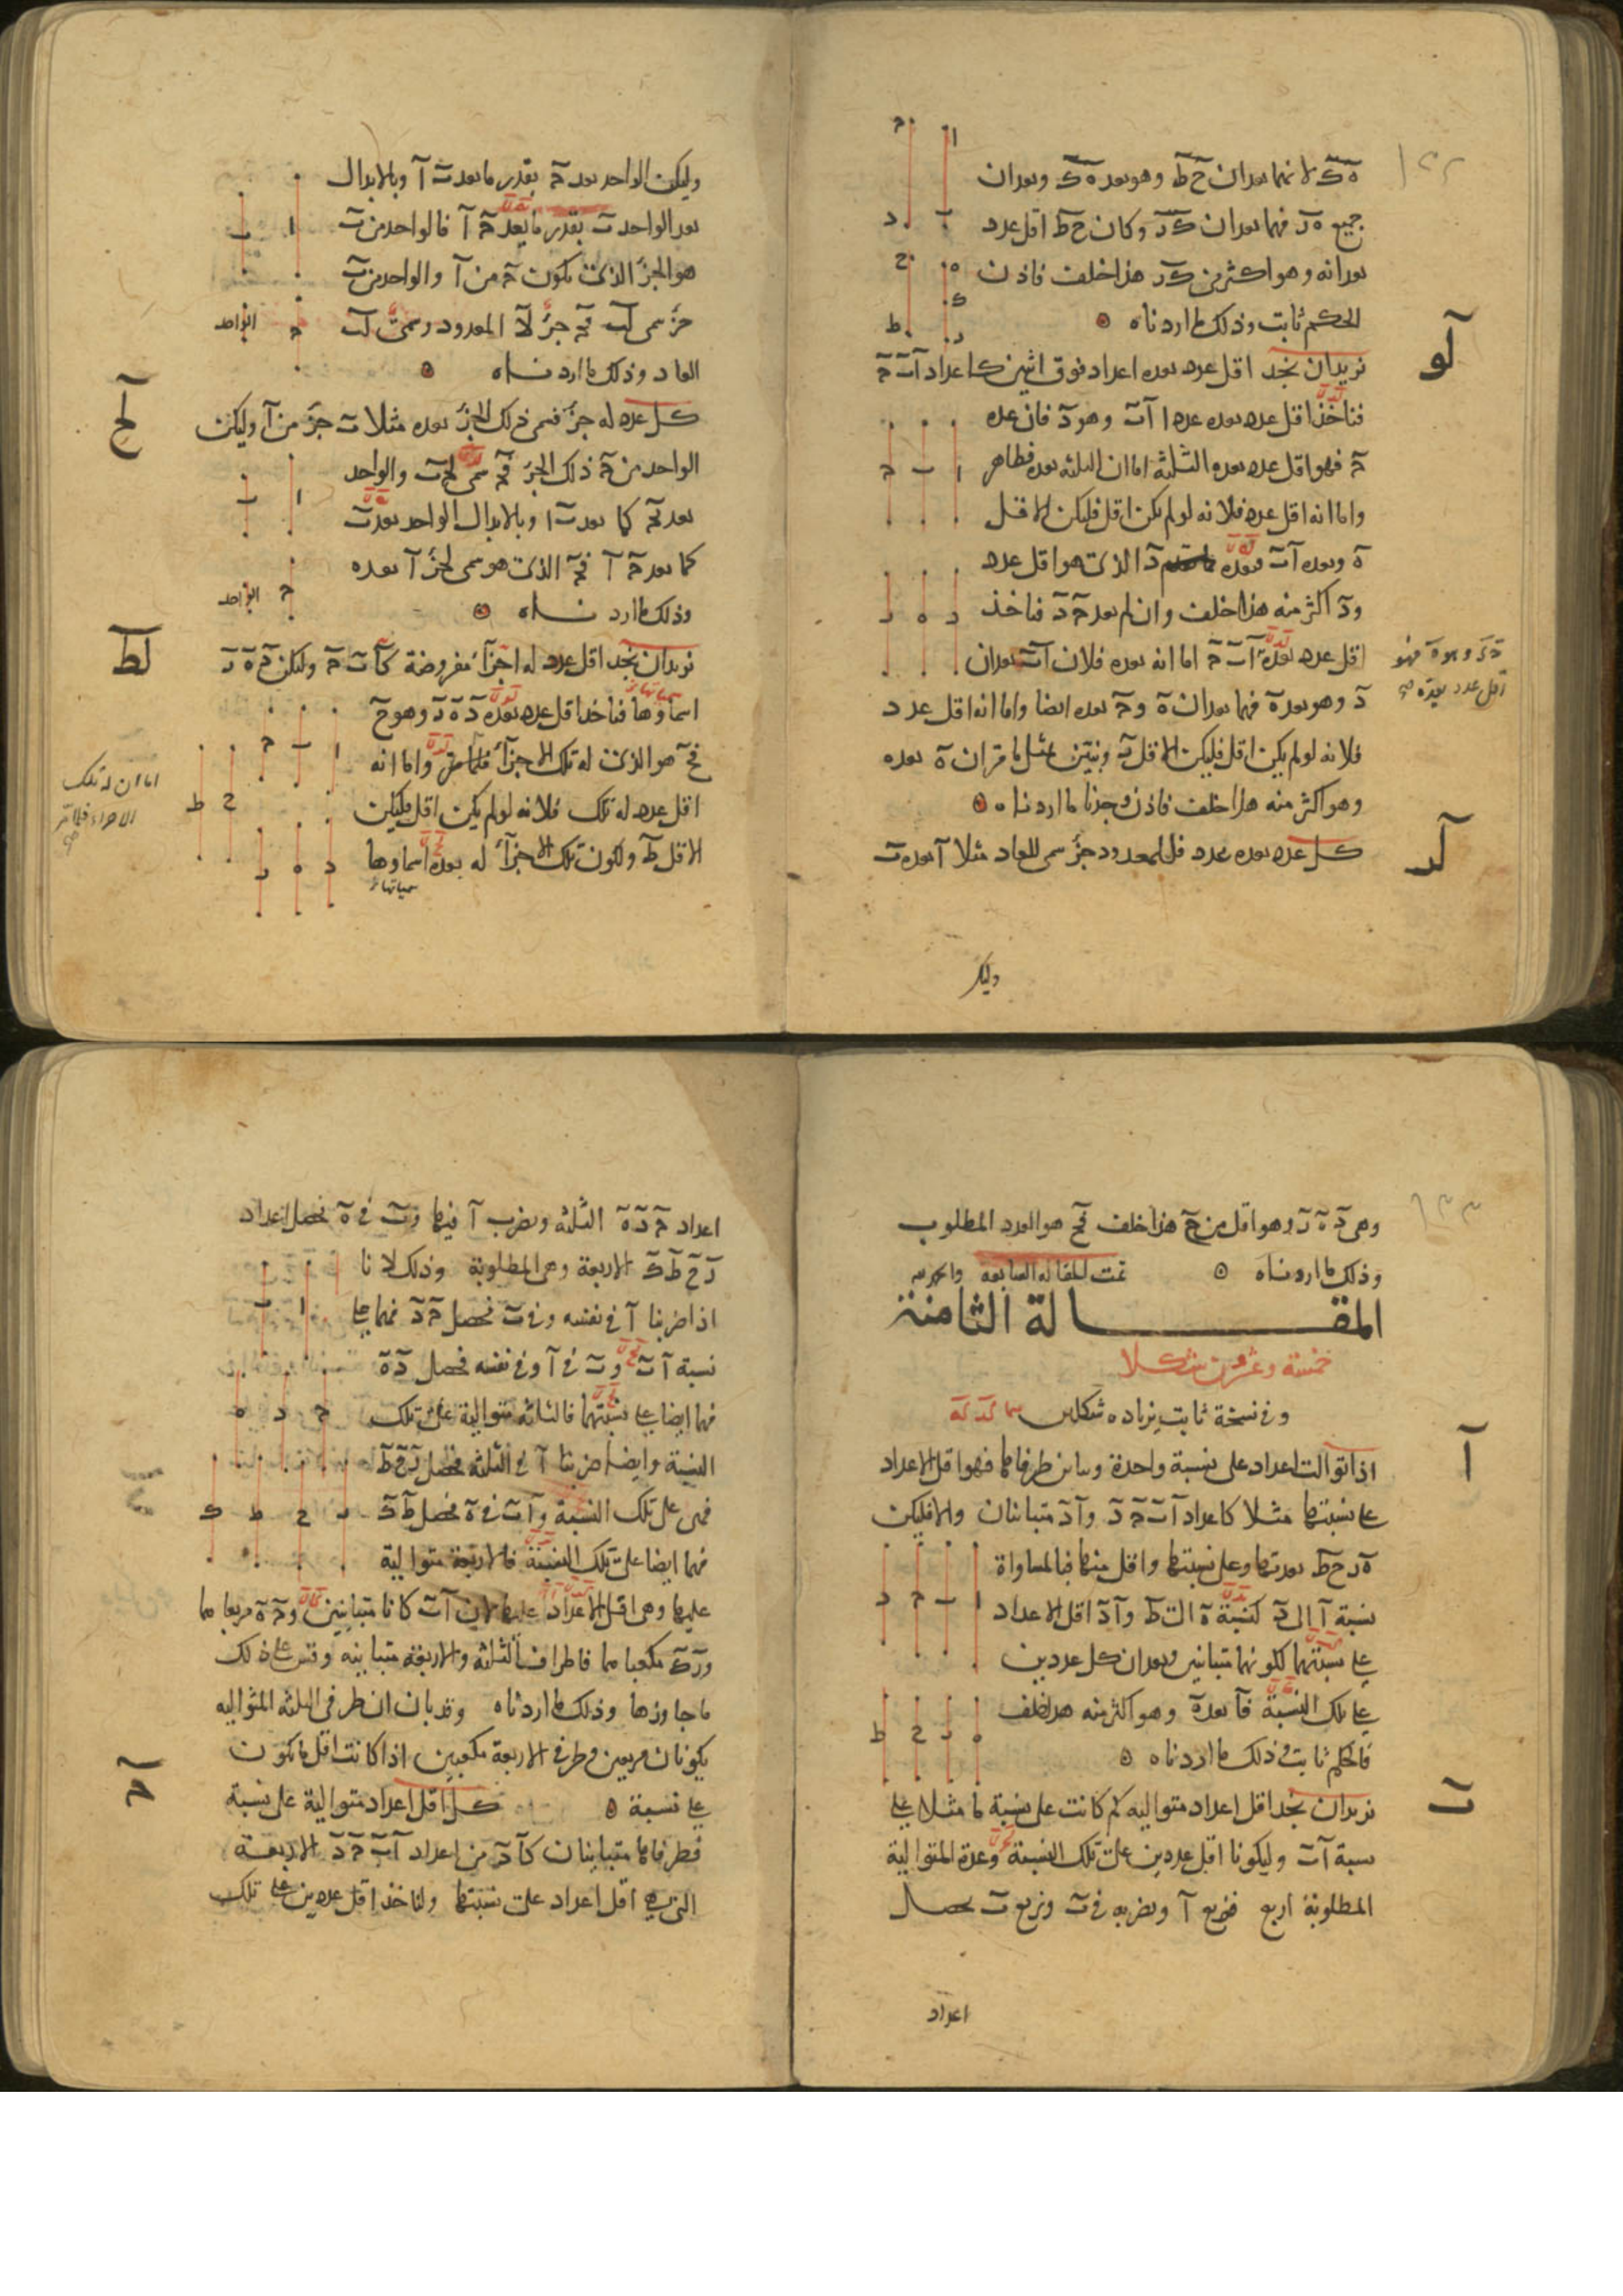 ه‍ ك لانهما يعدان ح ط وهو يعد ه‍ ك ويعدان
جميع ه‍ ز فهما يعدان ك ز وكان ح ط اقل عدد
يعدانه وهو اكثر من ك ز هذا خلف فاذن
الحكم ثابت وذلك ما اردناه
لو
نريد ان نجد اقل عدد يعده اعداد فوق اثنين كاعداد ا ب ج
فناخذ اقل عدد يعده عددا ا ب وهو د فان عده
ج فهو اقل عدد يعده الثلثة اما ان الثلثة يعده فظاهر
واما انه اقل عدد فلانه لو لم يكن اقل فليكن الاقل
ه‍ ويعده ا ب فيعده د الذى هو اقل عدد
ود اكثر منه هذا خلف وان لم يعد ج د فناخذ
اقل عدد يعده ا ب ج اما انه يعده فلان ا ب يعدان
د وهو يعد ه‍ فهما يعدان ه‍ وج يعده ايضا واما انه اقل عدد
فلانه لو لم يكن اقل فليكن الاقل ز ونبين بمثل ما مر ان ه‍ يعده
وهو اكثر منه هذا خلف فاذن وجدنا ما اردناه
لز
كل عدد يعده عدد فللمعدود جزء سمى للعاد مثلا ا يعده ب
وليكن
وليكن الواحد يعد ج بقدر ما يعد ب ا وبالابدال
يعد الواحد ب بقدر ما يعد ج ا فالواحد من ب
هو الجزء الذى يكون ج من ا والواحد من ب
جزء سمى لب فج جزء لا المعدود سمى لب
العاد وذلك ما اردناه
لح
كل عدد له جزء فسمى ذلك الجزء يعده مثلا ب جزء من ا وليكن
الواحد من ج ذلك الجزء فج سمى لجزء ب والواحد
يعد ج كما يعد ب ا وبالابدال الواحد يعد ب
كما يعد ج ا فج الذى هو سمى لجزء ا يعده
وذلك ما اردناه
لط
نريد ان نجد اقل عدد له اجزاء مفروضة كا ب ج وليكن د ه‍ ز
اسماوها فناخذ اقل عدد يعده د ه‍ ز وهو ح
فح هو الذى له تلك الاجزاء فلما مر واما انه
اقل عدد له تلك فلانه لو لم يكن اقل فليكن
الاقل ط ولكون تلك الاجزاء له يعده اسماوها
اما ان له تلك
الاجزاء فلما مر
وهى د ه‍ ز وهو اقل من ح هذا خلف فح هو العدد المطلوب
وذلك ما اردناه تمت المقالة السابعة والحمد لله
المقالة الثامنة
خمسة وعشرون شكلا
وفى نسخة ثابت بزيادة شكلين
ا
اذا توالت اعداد على نسبة واحدة وتباين طرفاها فهو اقل الاعداد
على نسبتها مثلا كاعداد ا ب ج د وا د متباينان والا فليكن
ه‍ ز ح ط بعدتها وعلى نسبتها واقل منها فبالمساواة
نسبة ا الى د كنسبة ه‍ الى ط وا د اقل الاعداد
على نسبتهما لكونهما متباينين ويعدان كل عددين
على تلك النسبة فا يعد ه‍ وهو اكثر منه هذا خلف
فالحكم ثابت وذلك ما اردناه
ب
نريد ان نجد اقل اعداد متوالية كم كانت على نسبة ما مثلا على
نسبة ا ب وليكونا اقل عددين على تلك النسبة وعدة المتوالية
المطلوبة اربع فنربع ا ونضربه فى ب ونربع ب يحصل
اعداد
اعداد ج د ه‍ الثلثة ونضرب ا فيها وب فى ه‍ يحصل اعداد
ز ح ط ك الاربعة وهى المطلوبة وذلك لانا
اذا ضربنا ا فى نفسه وفى ب يحصل ج د فهما على
نسبة ا ب وب فى ا وفى نفسه فحصل د ه‍
فهما ايضا على نسبتهما فالثلثة متوالية على تلك
النسبة وايضا ضربنا ا فى الثلثة فحصل ز ح ط
فهى على تلك النسبة وا ب فى ه‍ فحصل ط ك
فهما ايضا على تلك النسبة فالاربعة متوالية
عليها وهى اقل الاعداد عليها لان ا ب كانا متباينين وج ه‍ مربعاهما
وز ك مكعباهما فاطراف الثلثة والاربعة متباينة وقس على ذلك
ما جاوزها وذلك ما اردناه وقد بان ان طرفى الثلثة المتوالية
يكونان مربعين وطرفى الاربعة مكعبين اذا كانت اقل ما يكون
على نسبة
ج
كل اقل اعداد متوالية على نسبة
فطرفاها متباينان كا د من اعداد ا ب ج د الاربعة
التى هى اقل اعداد على نسبتها ولناخذ اقل عددين على تلك